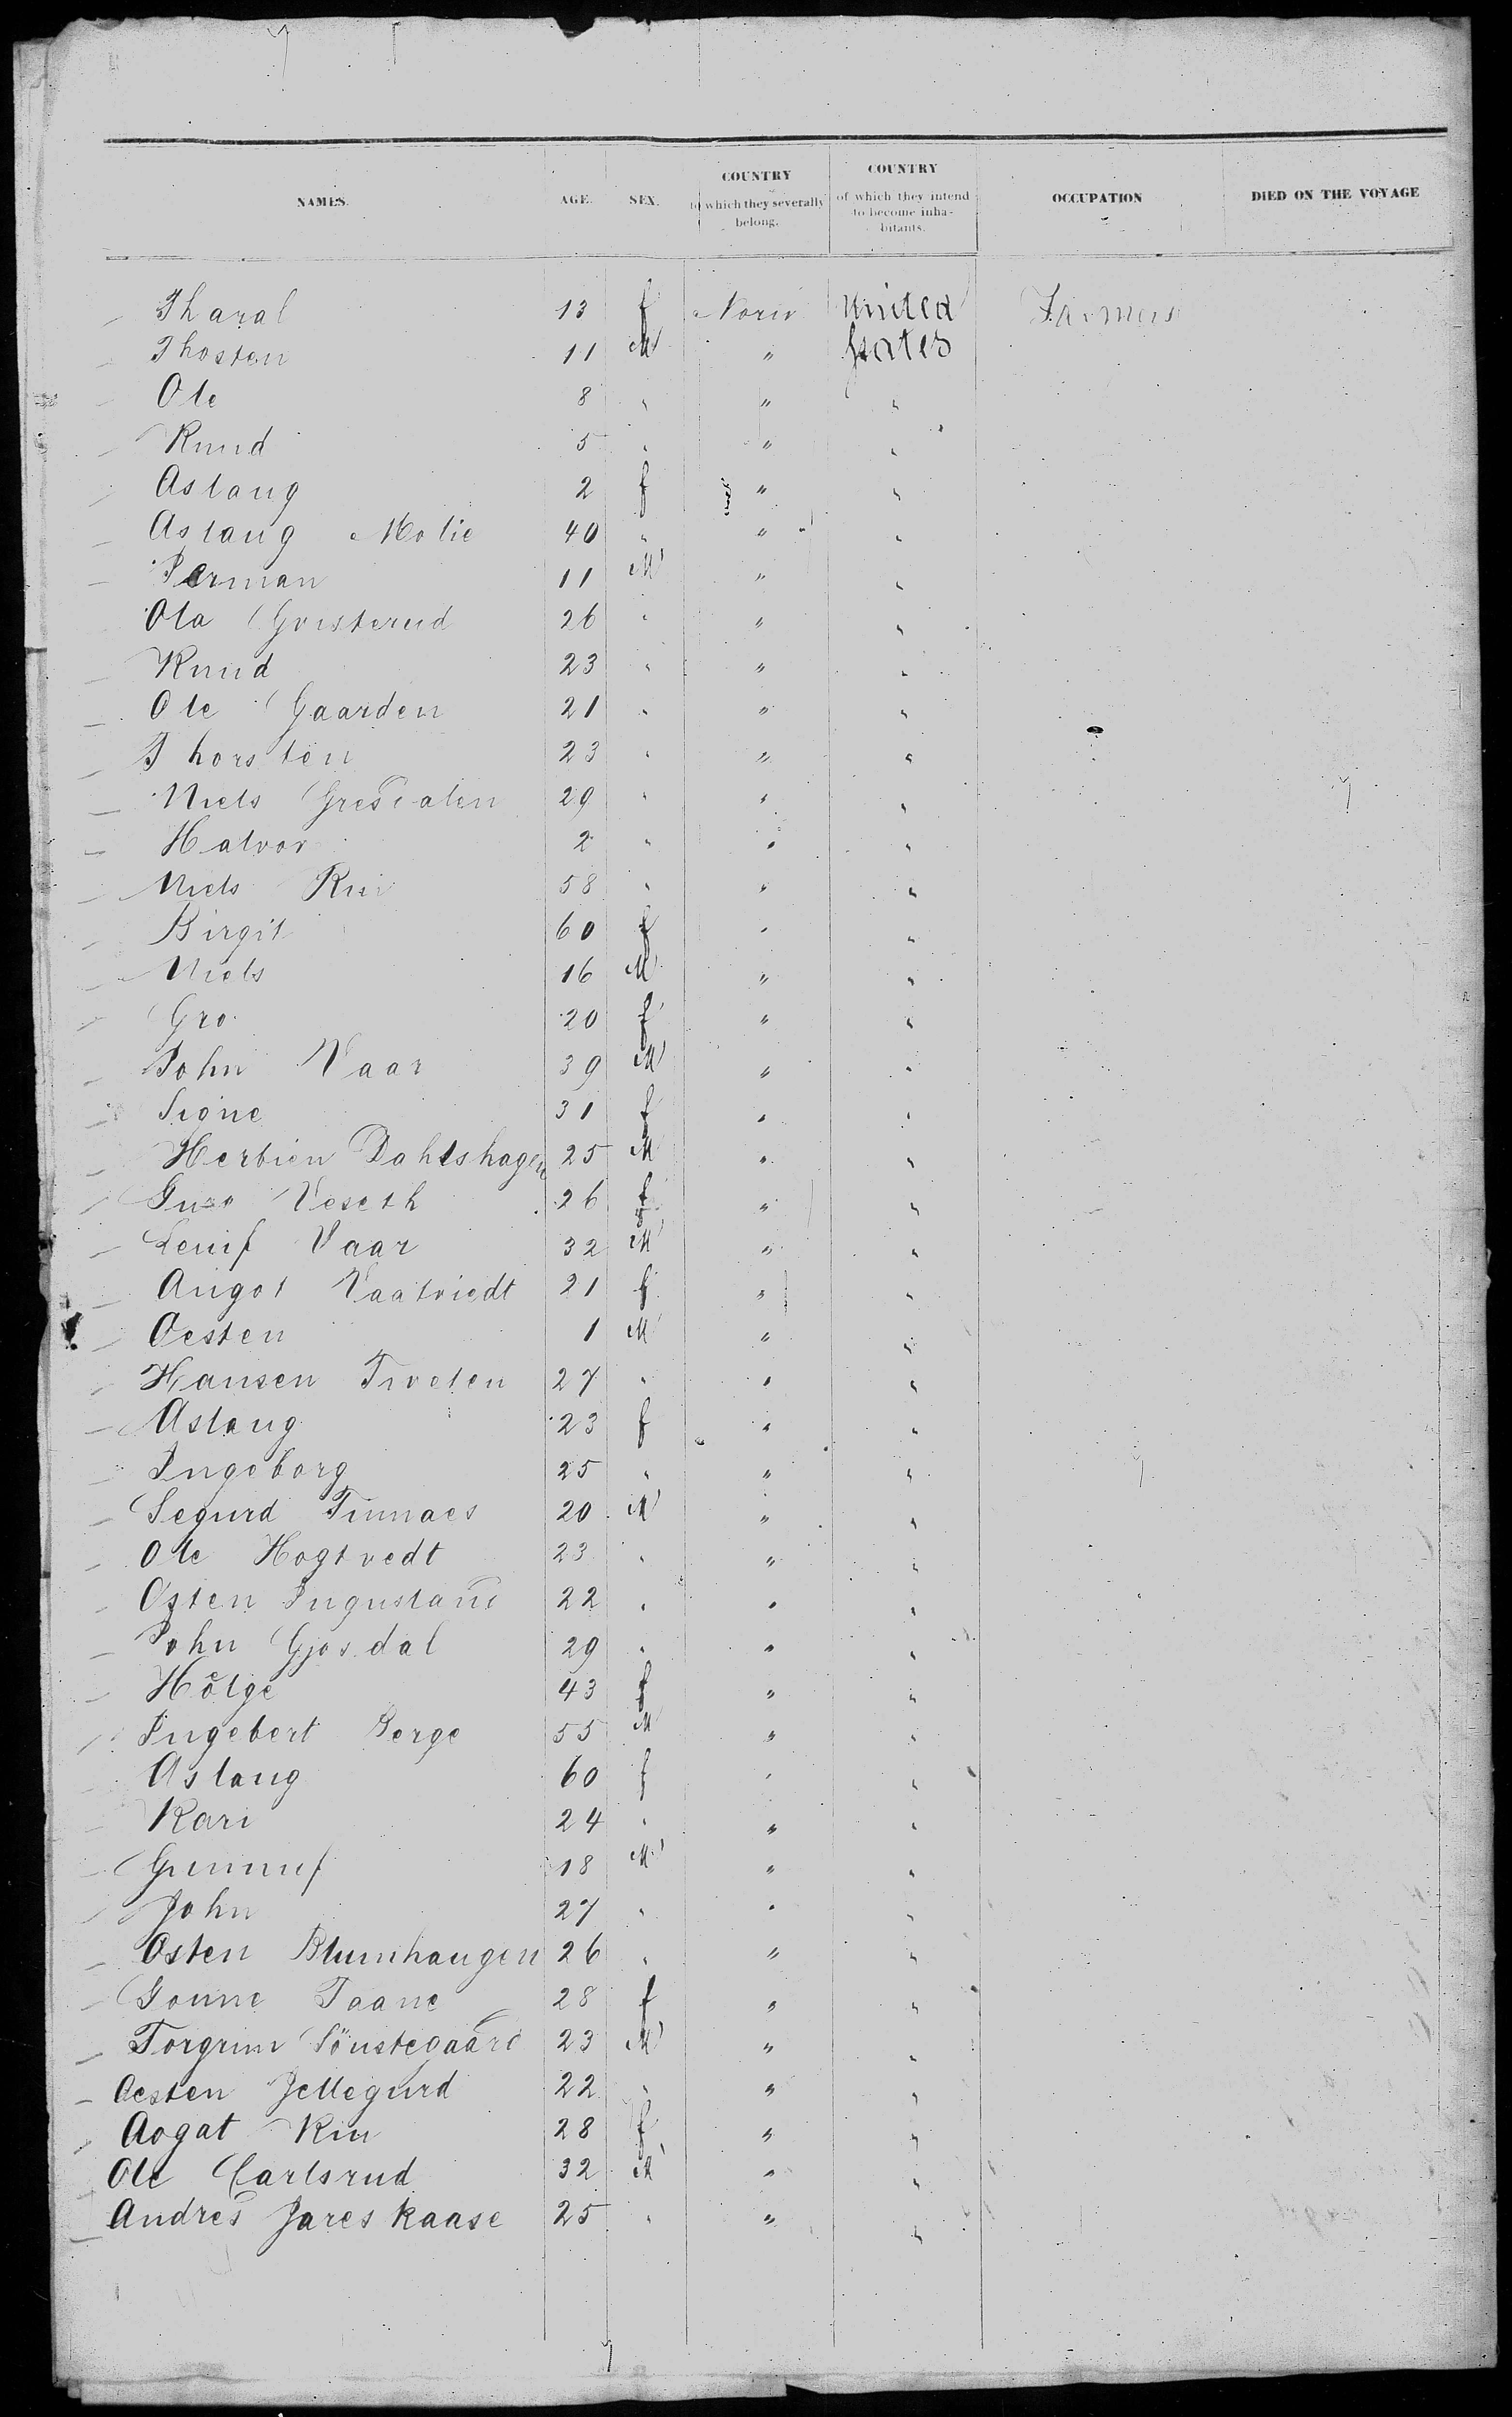 NAMES. AGE. SEX. COUNTRY to which they severally belong. COUNTRY of which they intend to become inhabitants. OCCUPATION DIED ON THE VOYAGE
Tharal 13 f Norw United Farmers
Thosten 11 M " States
Ole 8 " " "
Knud 5 " " "
Aslaug 2 f " "
Aslaug Molie 40 " " "
Perman 11 M " "
Ola Gvisterud 26 " " "
Knud 23 " " "
Ole Gaarden 21 " " "
Thorsten 23 " " "
Niels Gresdalen 29 " " "
Halvor 2 " " "
Niels Rui 58 " " "
Birgit 60 f " "
Niels 16 M " "
Gro 20 f " "
John Vaar 39 M " "
Signe 31 f " "
Herbien Dahlshagen 25 M " "
Guro Veseth 26 f " "
Leuif Vaar 32 M " "
Angot Vaatviedt 21 f " "
Oesten 1 M " "
Hansen Tveten 27 " " "
Aslaug 23 f " "
Ingeborg 25 " " "
Segurd Tinnaes 20 M " "
Ole Hogtvedt 23 " " "
Osten Ingusland 22 " " "
John Gjosdal 29 " " "
Holge 43 f " "
Ingebert Berge 55 M " "
Aslaug 60 f " "
Kari 24 " " "
Gunnuf 18 M " "
John 27 " " "
Osten Blumhaugen 26 " " "
Gonne Taane 28 f " "
Torgrim Sönstegaard 23 M " "
Oesten Jellegurd 22 " " "
Aogat Riu 28 f " "
Ole Carlsrud 32 M " "
Andres Jares Kaase 25 " " "